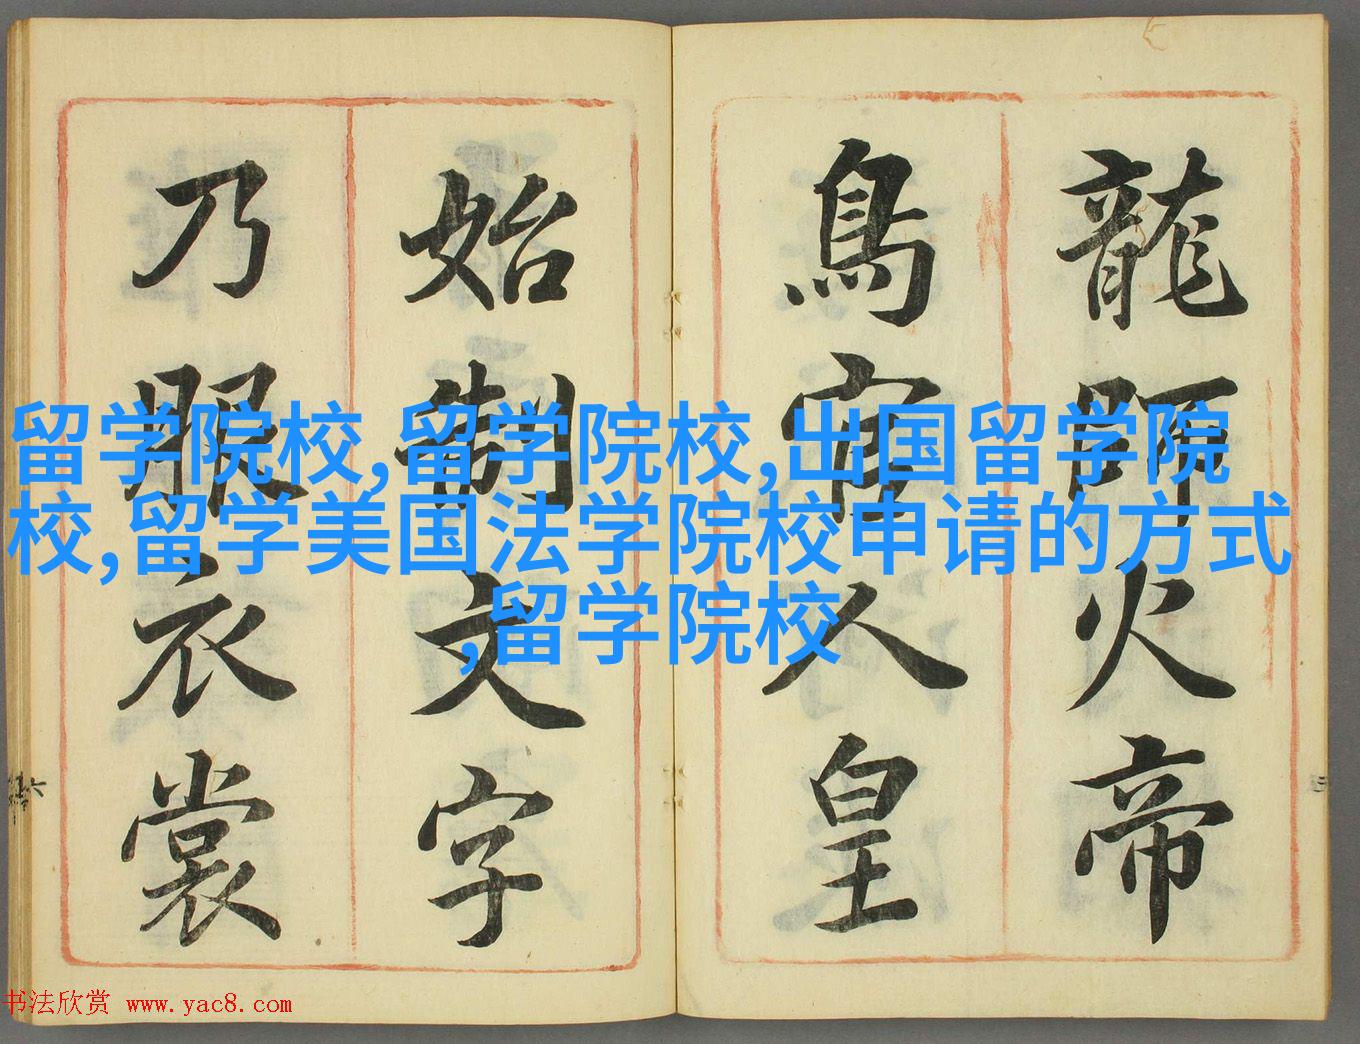 龍師火帝
鳥官人皇
始制文字
乃服衣裳
留学院校,留学院校,出国留学院
校,留学美国法学院校申请的方式
,留学院校
书法欣赏 www.yac8.com